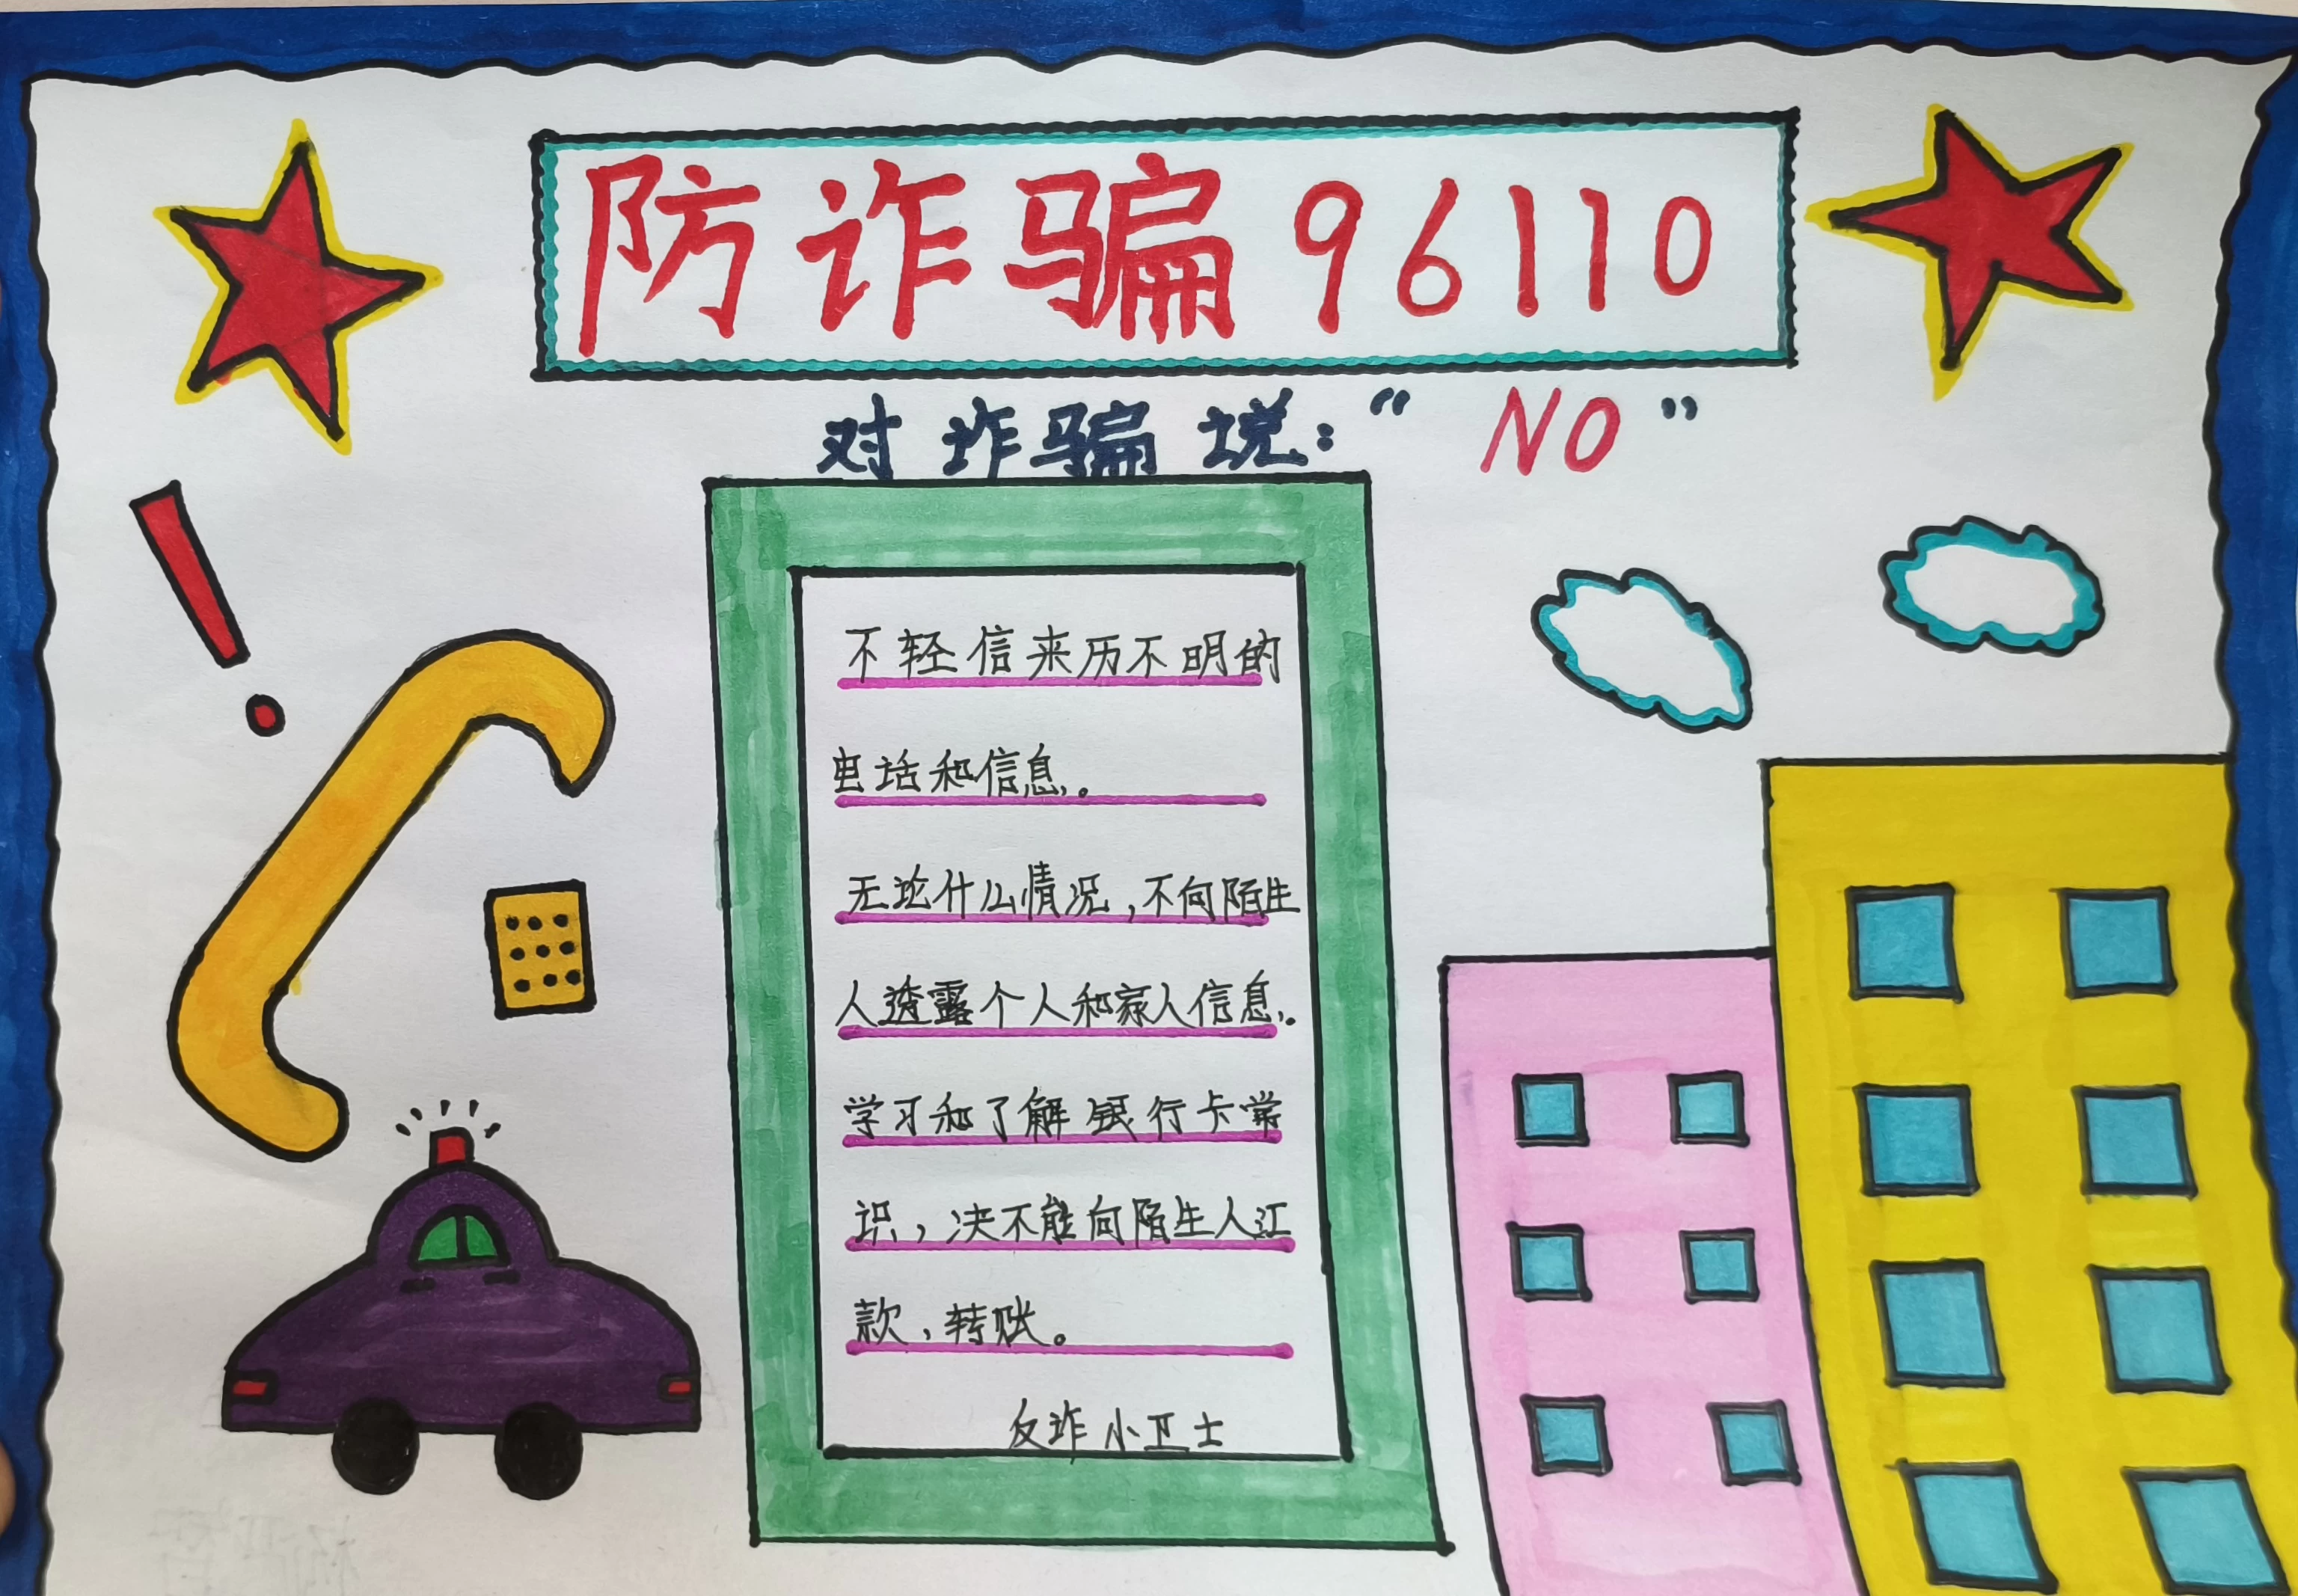 防诈骗96110
对诈骗说:“NO”
不轻信来历不明的
电话和信息。
无论什么情况,不向陌生
人透露个人和家人信息。
学习和了解银行卡常
识,决不能向陌生人江
款,转账。
反诈小卫士